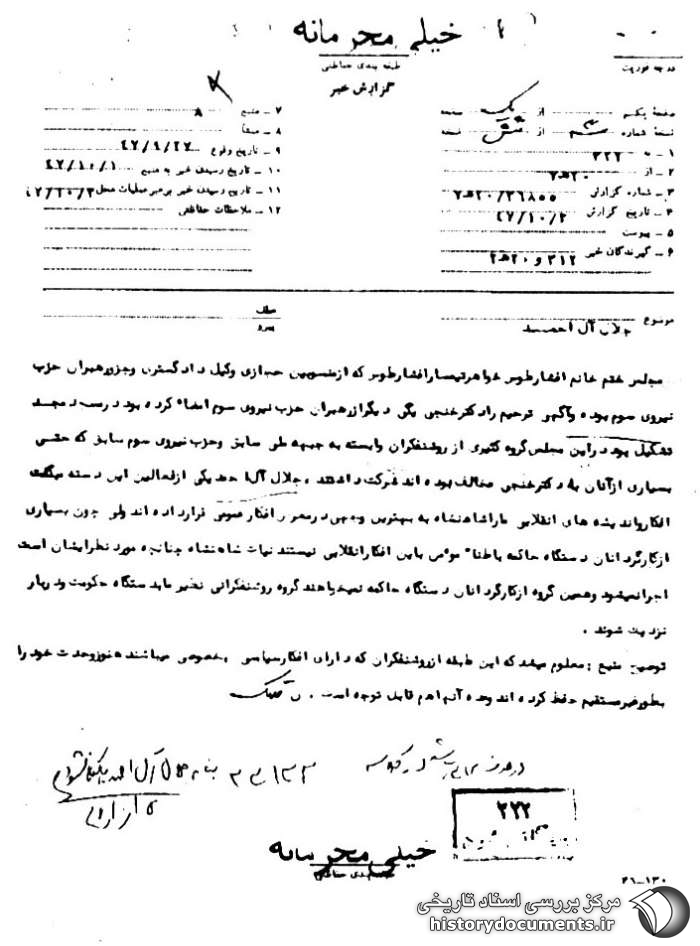 خیلی محرمانه
طبقه بندی حفاظتی
درجه فوریت
گزارش خبر
صفحه یکم از یک صفحه
نسخه شماره سه از شش نسخه
۱ - به ۳۲۲
۲ - از ۲۰ه۷
۳ - شماره گزارش ۲۰/۳۶۸۵۵ه۷
۴ - تاریخ گزارش ۴۷/۱۰/۲
۵ - پیوست
۶ - گیرندگان خبر ۳۱۲ و ۲۰ه۲
۷ - منبع
۸ - منشأ
۹ - تاریخ وقوع ۴۷/۹/۲۷
۱۰ - تاریخ رسیدن خبر به منبع ۴۷/۱۰/۱
۱۱ - تاریخ رسیدن خبر برهبر عملیات محل
۱۲ - ملاحظات حفاظتی
موضوع جلال آل احمد
عطف
پیرو
مجلس ختم خانم افشارطوس خواهرتیمسارافشارطوس که ازمنسوبین حجازی وکیل دادگستری وجزورهبران حزب
نیروی سوم بوده واگهی ترحیم رادکترخنجی یکی دیگرازرهبران حزب نیروی سوم امضاء کرده بود درمسجد مجد
تشکیل بود دراین مجلس گروه کثیری از روشنفکران وابسته به جبهه ملی سابق وحزب نیروی سوم سابق که حتی
بسیاری ازآنان با دکترخنجی مخالف بوده اند شرکت داشتند . جلال آل احمد یکی ازفعالین این دسته میگفت
افکارواندیشه های انقلابی ماراشاهنشاه به بهترین وجهی درمعرض افکارعمومی قرارداده اند ولی چون بسیاری
ازکارگردانان دستگاه حاکمه باطناً مومن باین افکارانقلابی نیستند نیات شاهنشاه چنانچه مورد نظرایشان است
اجرانمیشود وهمین گروه ازکارگردانان دستگاه حاکمه نمیخواهند گروه روشنفکرانی نظیر مابدستگاه حکومت ودربار
نزدیک شوند .
توضیح منبع : معلوم میشد که این طبقه ازروشنفکران که دارای افکارسیاسی بخصوصی میباشند هنوزوحدت خود را
بطورغیرمستقیم حفظ کرده اند وحده آنهم قابل توجه است .
۳۲۲
خیلی محرمانه
طبقه بندی حفاظتی
۲۱-۱۳۰
مرکز بررسی اسناد تاریخی
historydocuments.ir